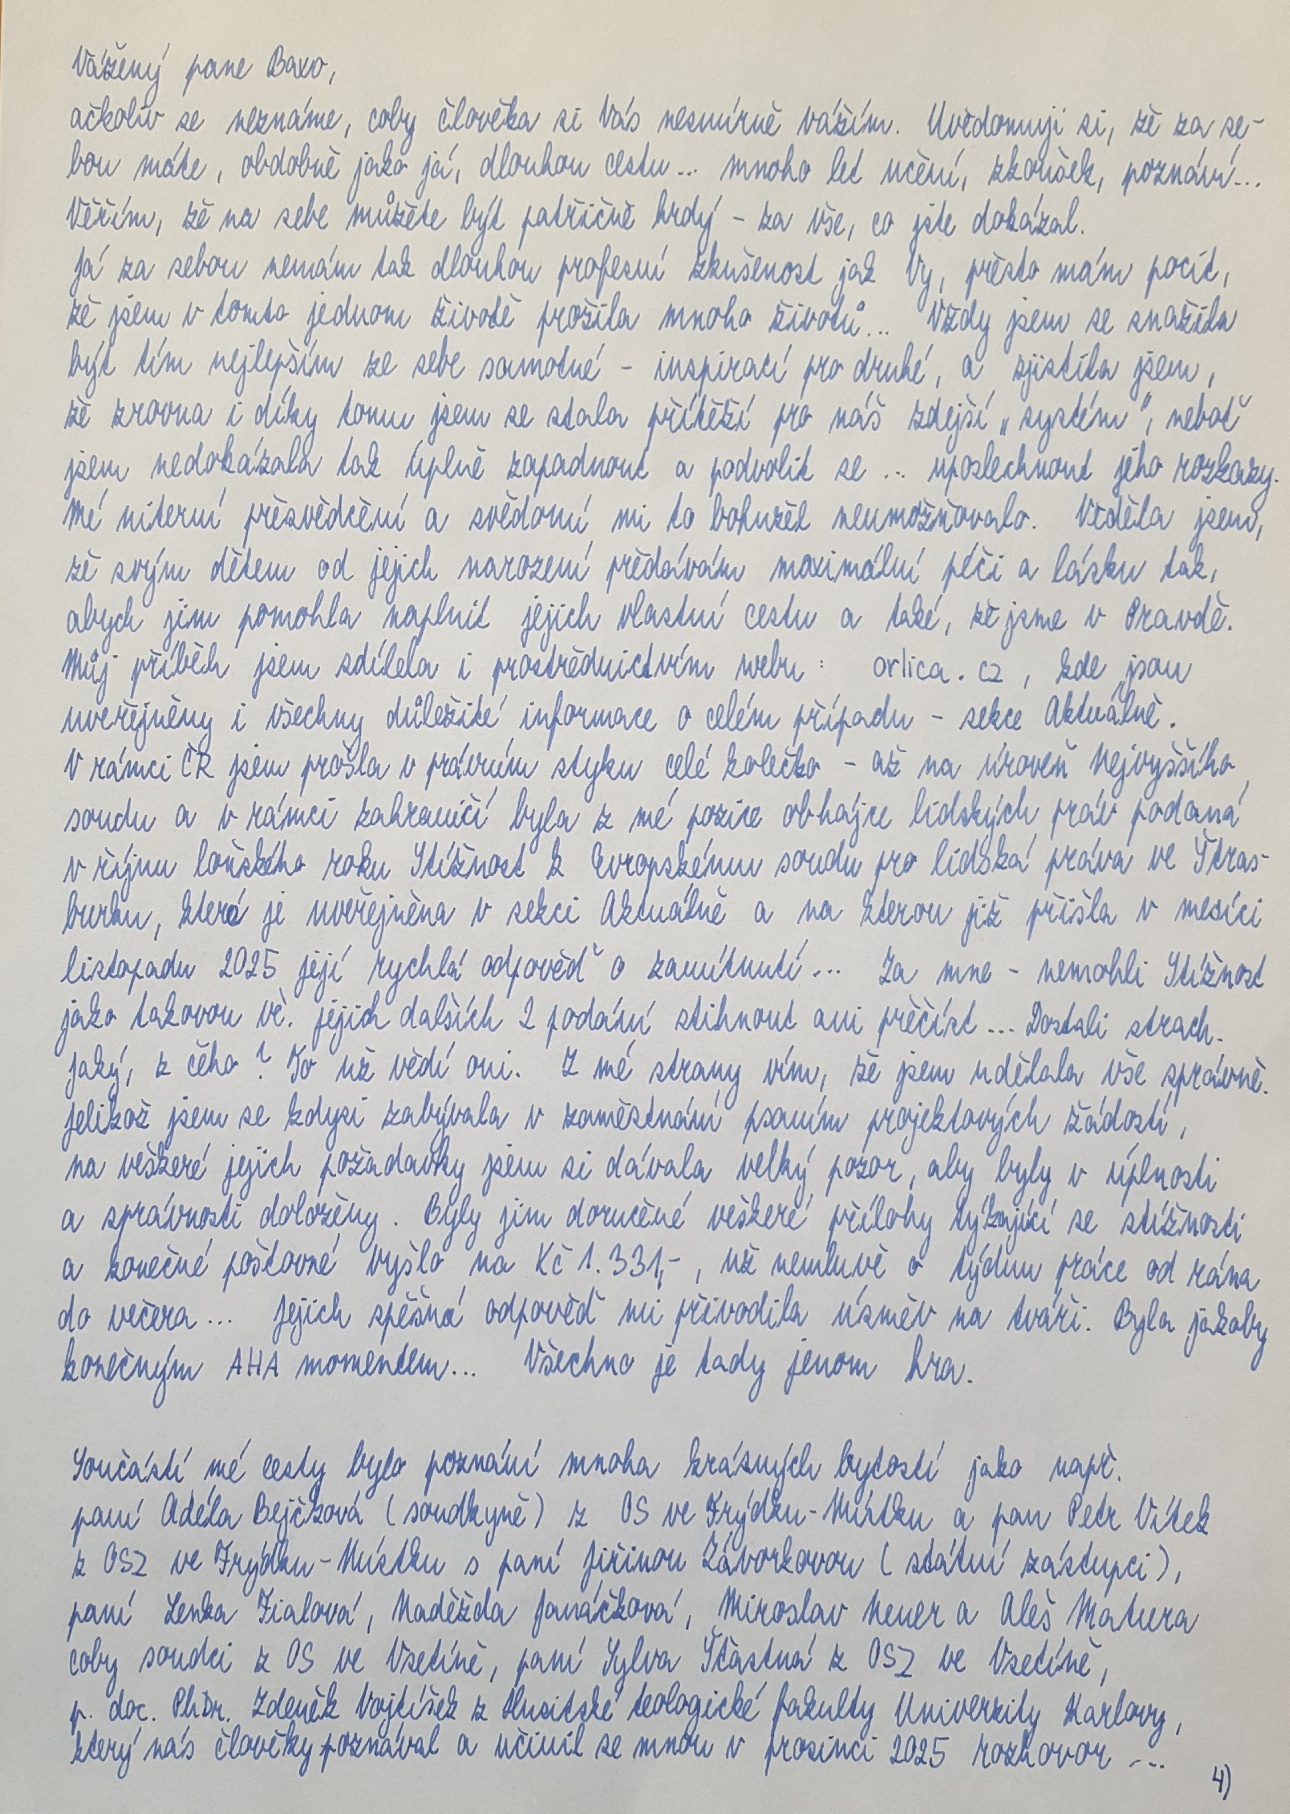 Vážený pane Baxo,
ačkoliv se neznáme, coby člověka si Vás nesmírně vážím. Uvědomuji si, že za se-
bou máte, obdobně jako já, dlouhou cestu... mnoho let učení, zkoušek, poznání...
Věřím, že na sebe můžete být patřičně hrdý - za vše, co jste dokázal.
Já za sebou nemám tak dlouhou profesní zkušenost jak Vy, přesto mám pocit,
že jsem v tomto jednom životě prožila mnoho životů... Vždy jsem se snažila
být tím nejlepším ze sebe samotné - inspirací pro druhé, a zjistila jsem,
že zrovna i díky tomu jsem se stala přítěží pro náš zdejší „systém", neboť
jsem nedokázala tak úplně zapadnout a podvolit se ... uposlechnout jeho rozkazy.
Mé niterní přesvědčení a svědomí mi to bohužel neumožňovalo. Věděla jsem,
že svým dětem od jejich narození předávám maximální péči a lásku tak,
abych jim pomohla naplnit jejich vlastní cestu a také, že jsme v Pravdě.
Můj příběh jsem sdílela i prostřednictvím webu: orlica.cz, kde jsou
uveřejněny i všechny důležité informace o celém případu - sekce Aktuálně.
V rámci ČR jsem prošla v právním styku celé kolečko - až na úroveň Nejvyššího
soudu a v rámci zahraničí byla z mé pozice obhájce lidských práv podaná
v říjnu loňského roku Stížnost k Evropskému soudu pro lidská práva ve Štras-
burku, která je uveřejněna v sekci Aktuálně a na kterou již přišla v měsíci
listopadu 2025 její rychlá odpověď o zamítnutí... Za mne - nemohli Stížnost
jako takovou vč. jejich dalších 2 podání stihnout ani přečíst... Dostali strach.
Jaký, z čeho? To už vědí oni. Z mé strany vím, že jsem udělala vše správně.
Jelikož jsem se kdysi zabývala v zaměstnání psaním projektových žádostí,
na veškeré jejich požadavky jsem si dávala velký pozor, aby byly v úplnosti
a správnosti doloženy. Byly jim doručené veškeré přílohy týkající se stížnosti
a konečné poštovné vyšlo na Kč 1.331,-, už nemluvě o týdnu práce od rána
do večera... Jejich spěšná odpověď mi přivodila úsměv na tváři. Byla jakoby
konečným AHA momentem... Všechno je tady jenom hra.
Součástí mé cesty bylo poznání mnoha krásných bytostí jako např.
paní Adéla Bejčková (soudkyně) z OS ve Frýdku-Místku a pan Petr Vítek
z OSZ ve Frýdku-Místku s paní Jiřinou Závorkovou (státní zástupci),
paní Lenka Fialová, Naděžda Janáčková, Miroslav Neuer a Aleš Matura
coby soudci z OS ve Vsetíně, paní Sylva Šťastná z OSZ ve Vsetíně,
p. doc. PhDr. Zdeněk Vojtíšek z Husitské teologické fakulty Univerzity Karlovy,
který nás člověky poznával a učinil se mnou v prosinci 2025 rozhovor ...
4)